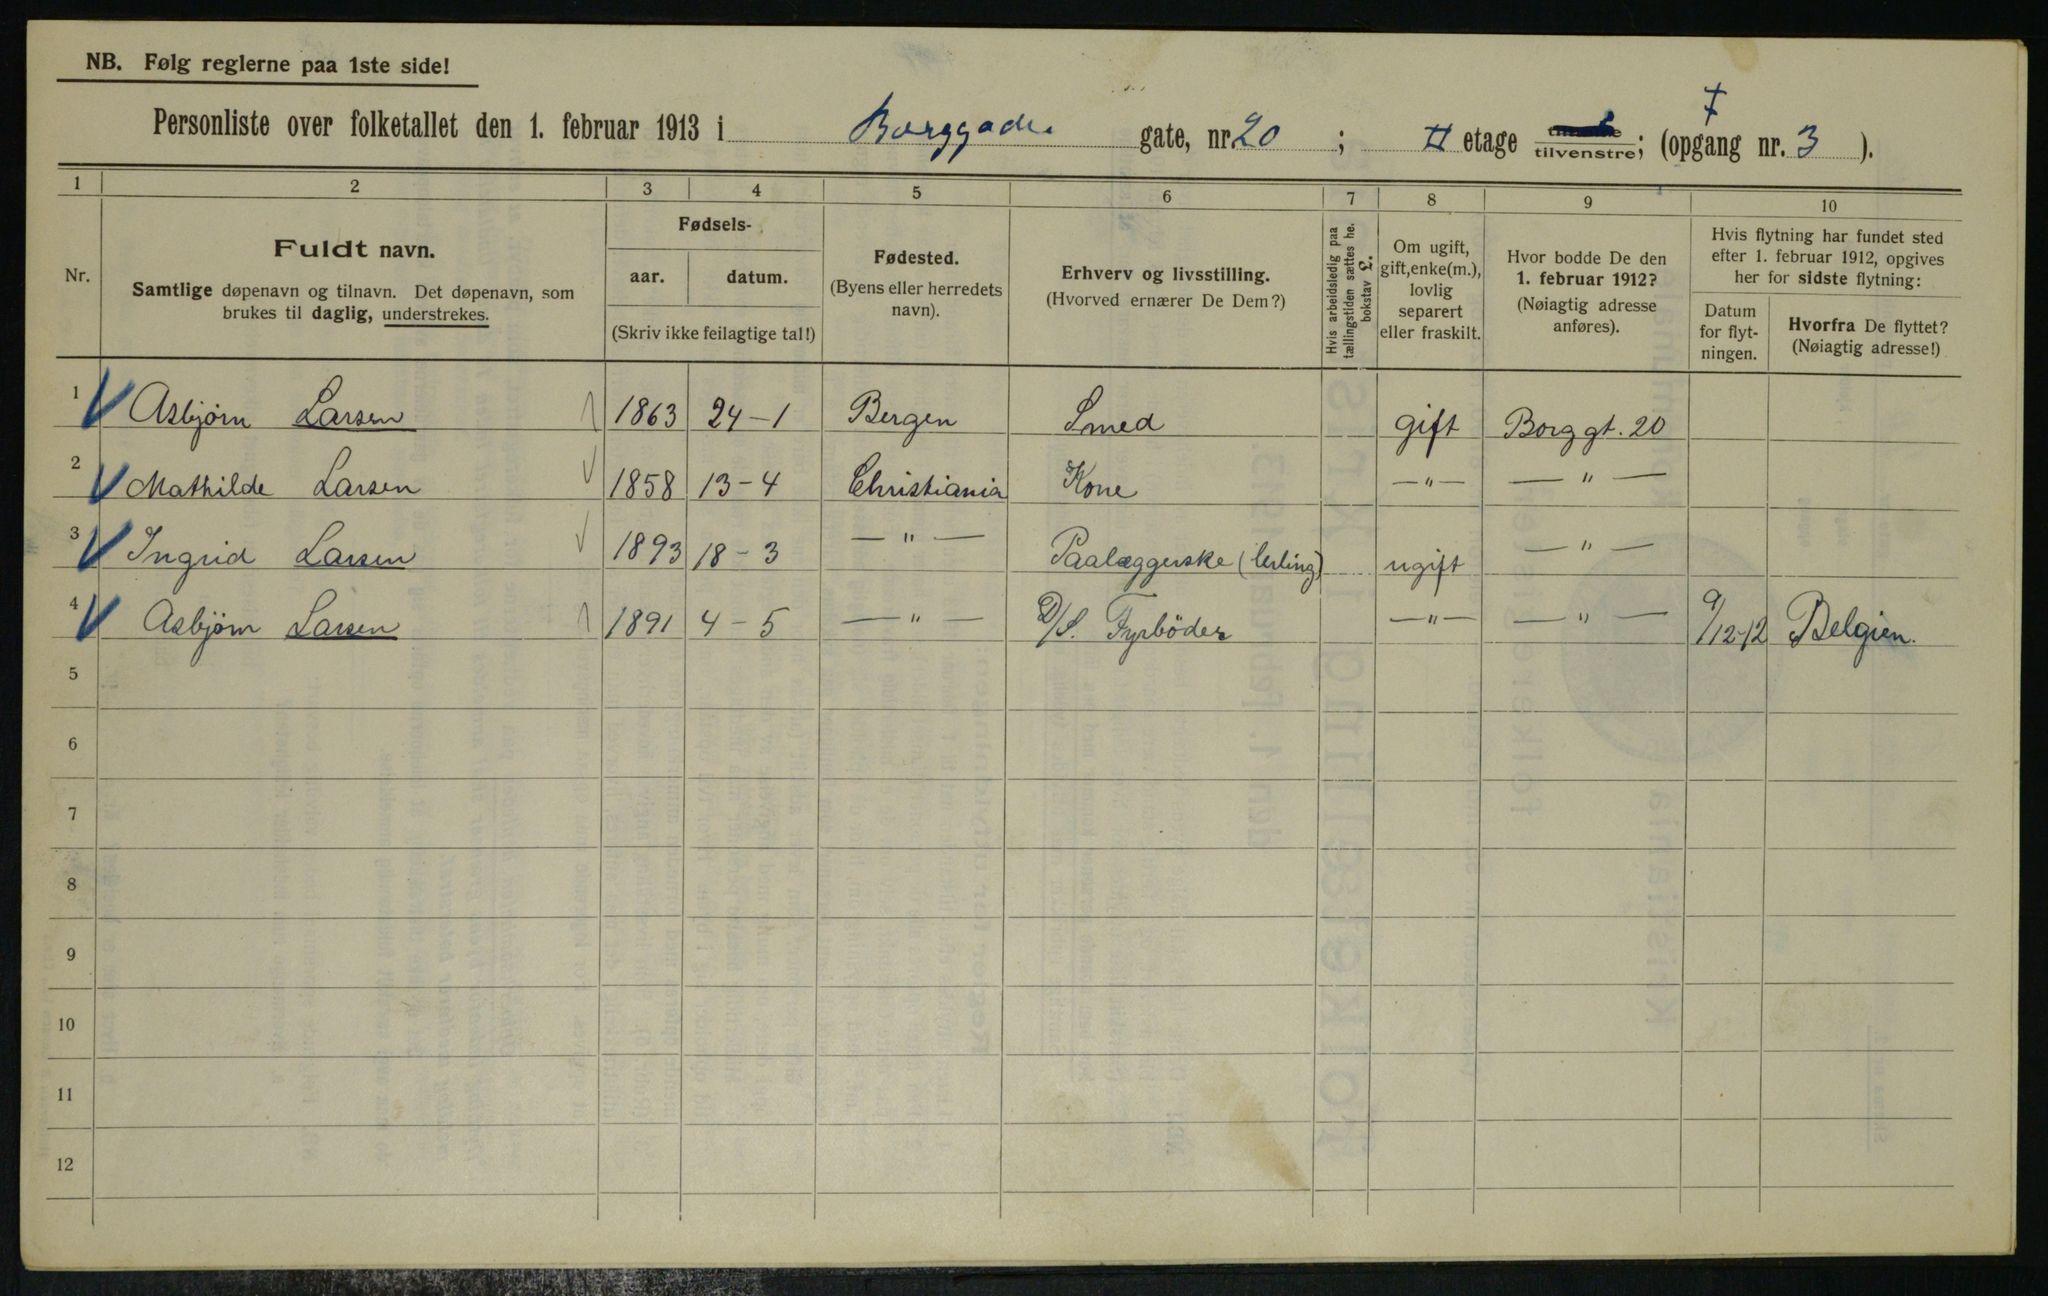 NB. Følg reglerne paa 1ste side!
Personliste over folketallet den 1. februar 1913 i Borggaden gate, nr. 20 ; II etage tilvenstre; (opgang nr. 3 ).
1 2 3 4 5 6 7 8 9 10
Nr.
Fuldt navn.
Samtlige døpenavn og tilnavn. Det døpenavn, som
brukes til daglig, understrekes.
Fødsels-
aar. datum.
(Skriv ikke feilagtige tal!)
Fødested.
(Byens eller herredets
navn).
Erhverv og livsstilling.
(Hvorved ernærer De Dem?)
Hvis arbeidsledig paa
tællingstiden sættes he.
bokstav L.
Om ugift,
gift, enke(m.),
lovlig
separert
eller fraskilt.
Hvor bodde De den
1. februar 1912?
(Nøiagtig adresse
anføres).
Hvis flytning har fundet sted
efter 1. februar 1912, opgives
her for sidste flytning:
Datum
for flyt-
ningen.
Hvorfra De flyttet?
(Nøiagtig adresse!)
1 Asbjörn Larsen 1863 24-1 Bergen Smed gift Borggt. 20
2 Mathilde Larsen 1858 13-4 Christiania Kone — " — — " —
3 Ingrid Larsen 1893 18-3 — " — Paalæggerske (lerling) ugift — " —
4 Asbjörn Larsen 1891 4-5 — " — D/S. Fyrböder — " — — " — 9/12-12 Belgien.
5
6
7
8
9
10
11
12